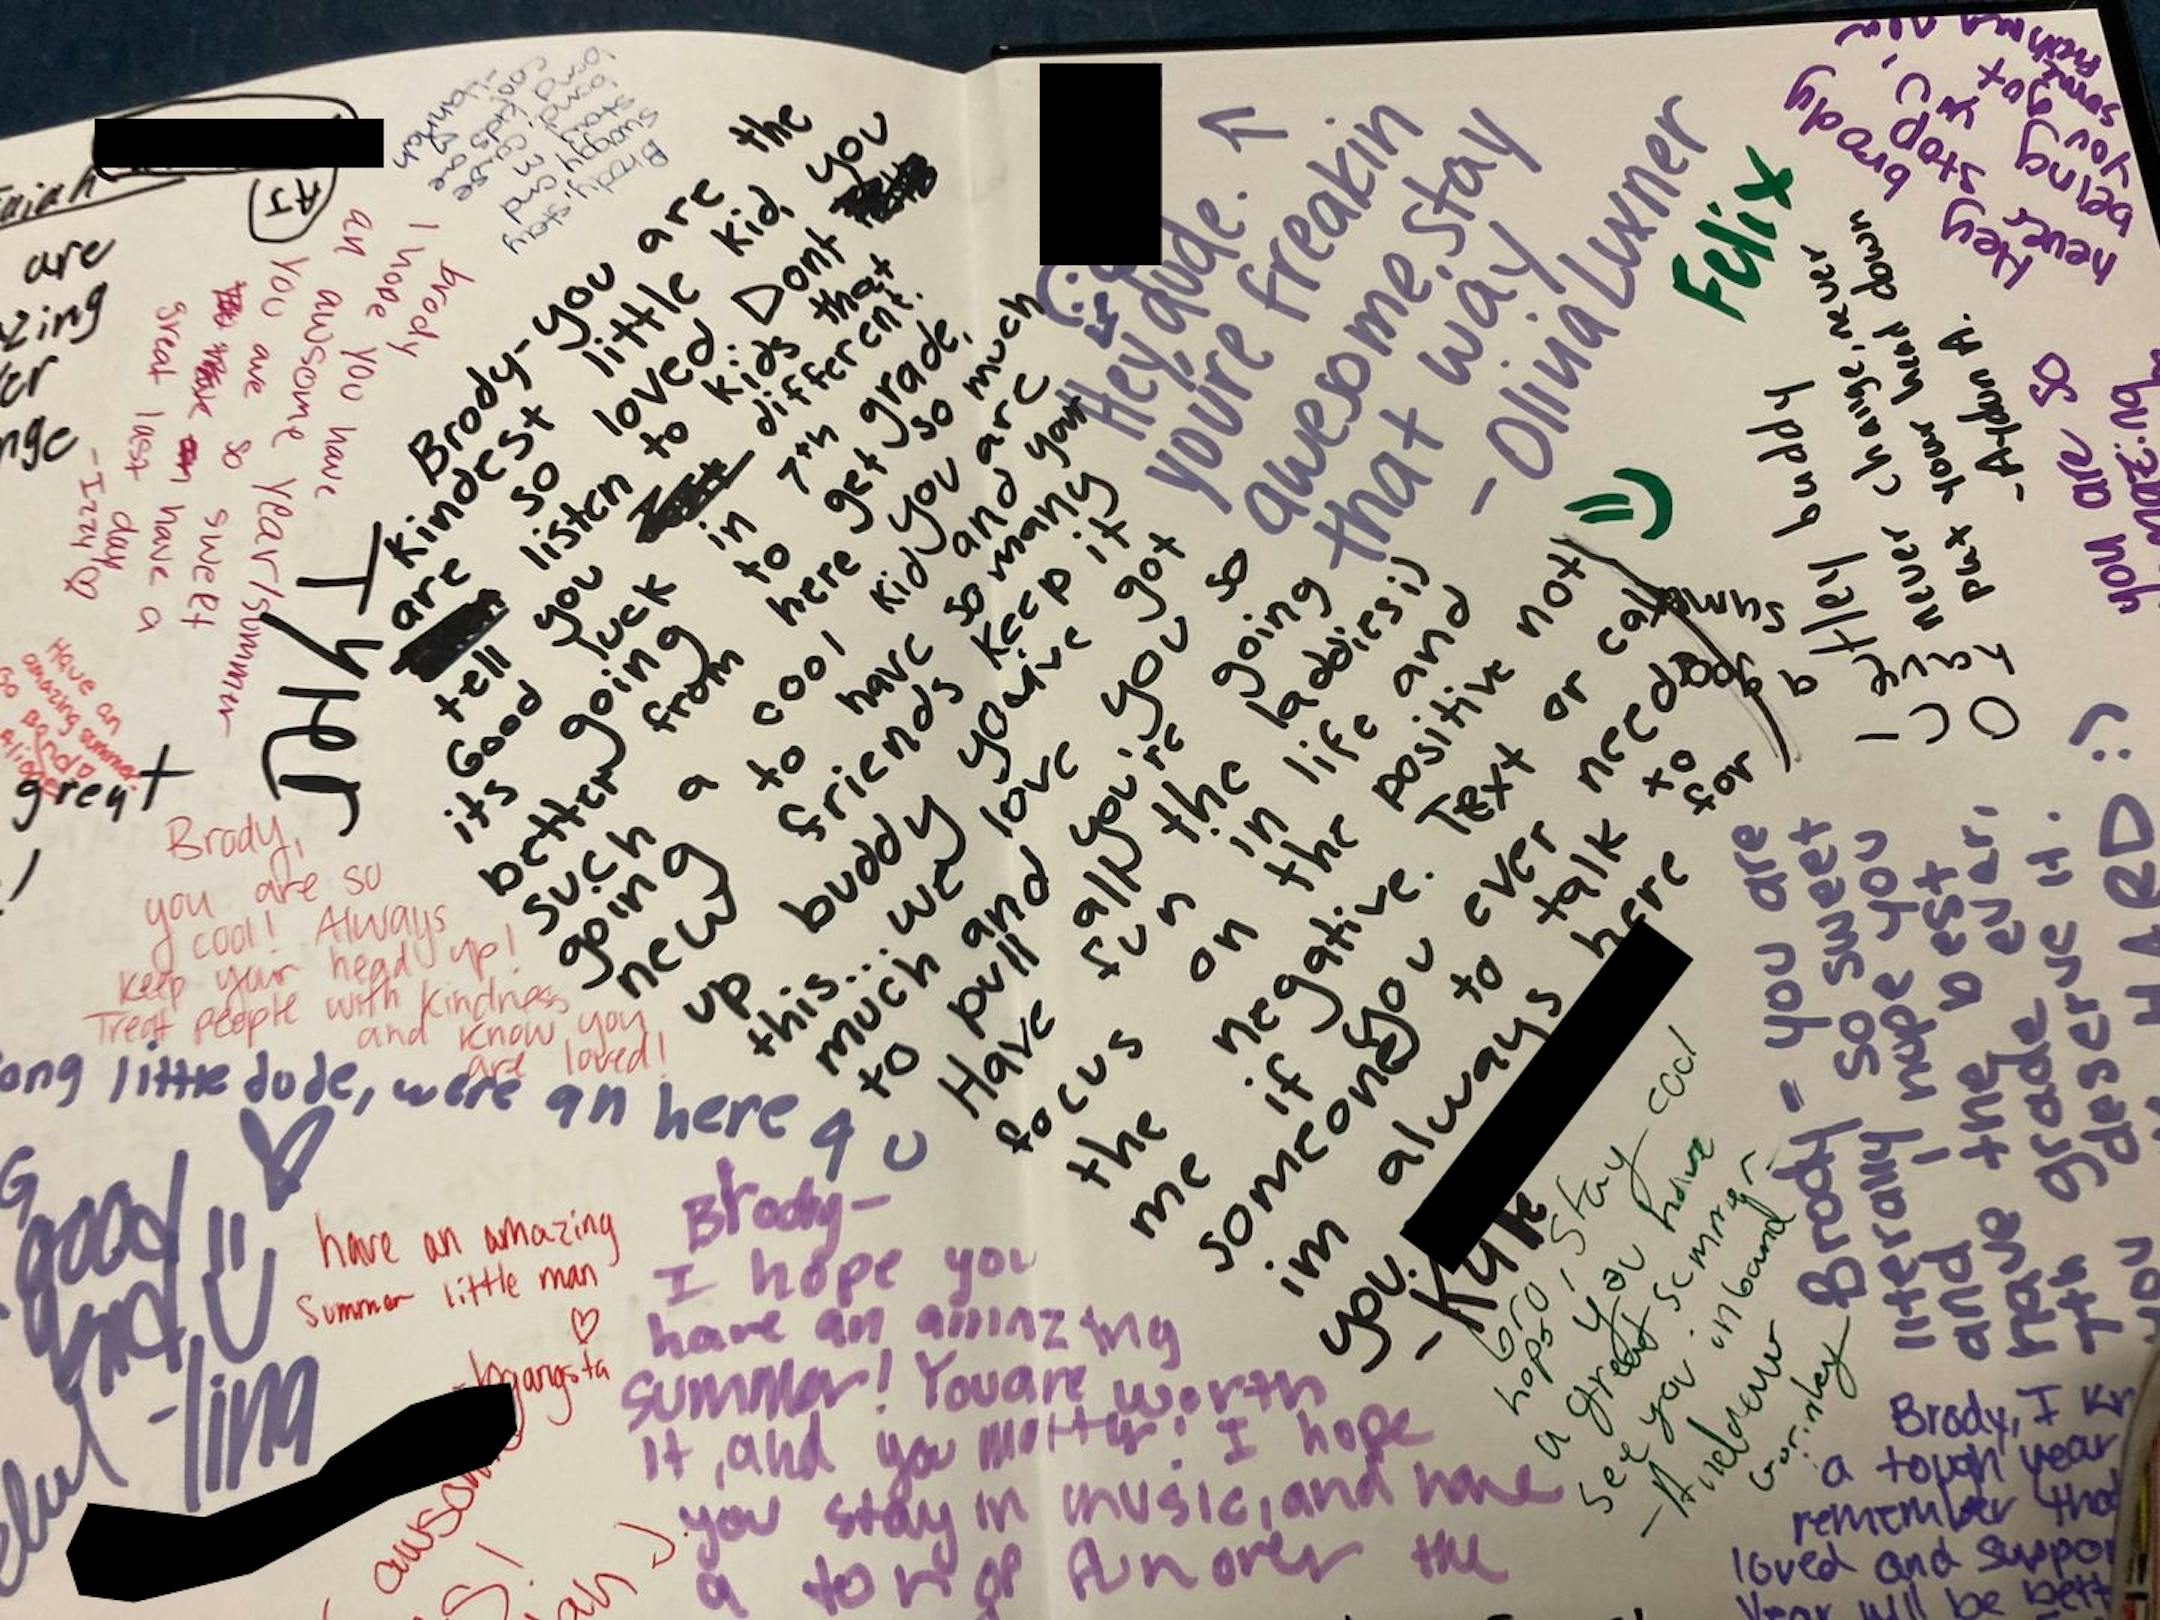 AJ
are
great
Brody, stay
swaggy and
stay in
band cause
cool kids are
-Hannah
brody
I hope you have
an awsome year/summer
you are so sweet
have a
great last day
-Izzy
Have an
amazing summer
Go band
Brody,
you are so
cool! Always
keep your head up!
Treat people with kindness
and know you
are loved!
little dude, were all here 4 U
good
-lina
have an amazing
Summer little man
Brody-you are the
kindest little kid, you
are so loved Dont
listen to kids that
tell you different.
Good luck in 7th grade,
its going to get so much
better from here you are
such a cool kid and your
going to have so many
new friends keep it
up buddy youve got
this... we love you so
much and you're going
to pull all the laddies ;)
Have fun in life and
focus on the positive not
the negative. Text or call
me if you ever need
someone to talk to
im always here for
you.
-Kyle
Hey dude.
you're freakin
awesome. Stay
that way
-Olina Luxner
Felix
Hey brody
never stop
being you
you got
Hey buddy
never change, never
never put your head down
-Aydan M.
you are so
Brody = you are
literally so sweet
and I hope you
have the best
7th grade ever,
you deserve it.
HARD :)
bro, stay cool
hope you have
a great summer
see you in band
-Andrew
Brody-
I hope you
have an amazing
summer! You are worth
it, and you matter. I hope
you stay in music, and have
a ton of fun over the
Brody, I
a tough year
remember
loved and
year will be